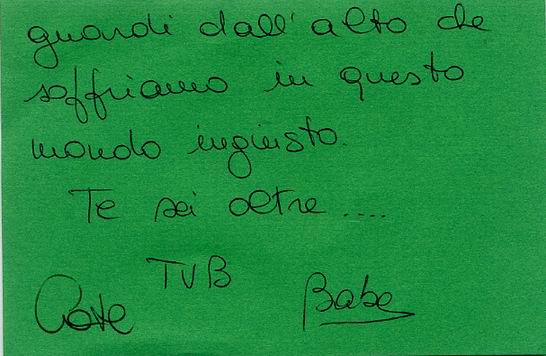 guardi dall'alto che
soffriamo in questo
mondo ingiusto.
Te sei oltre....
TVB
Babe